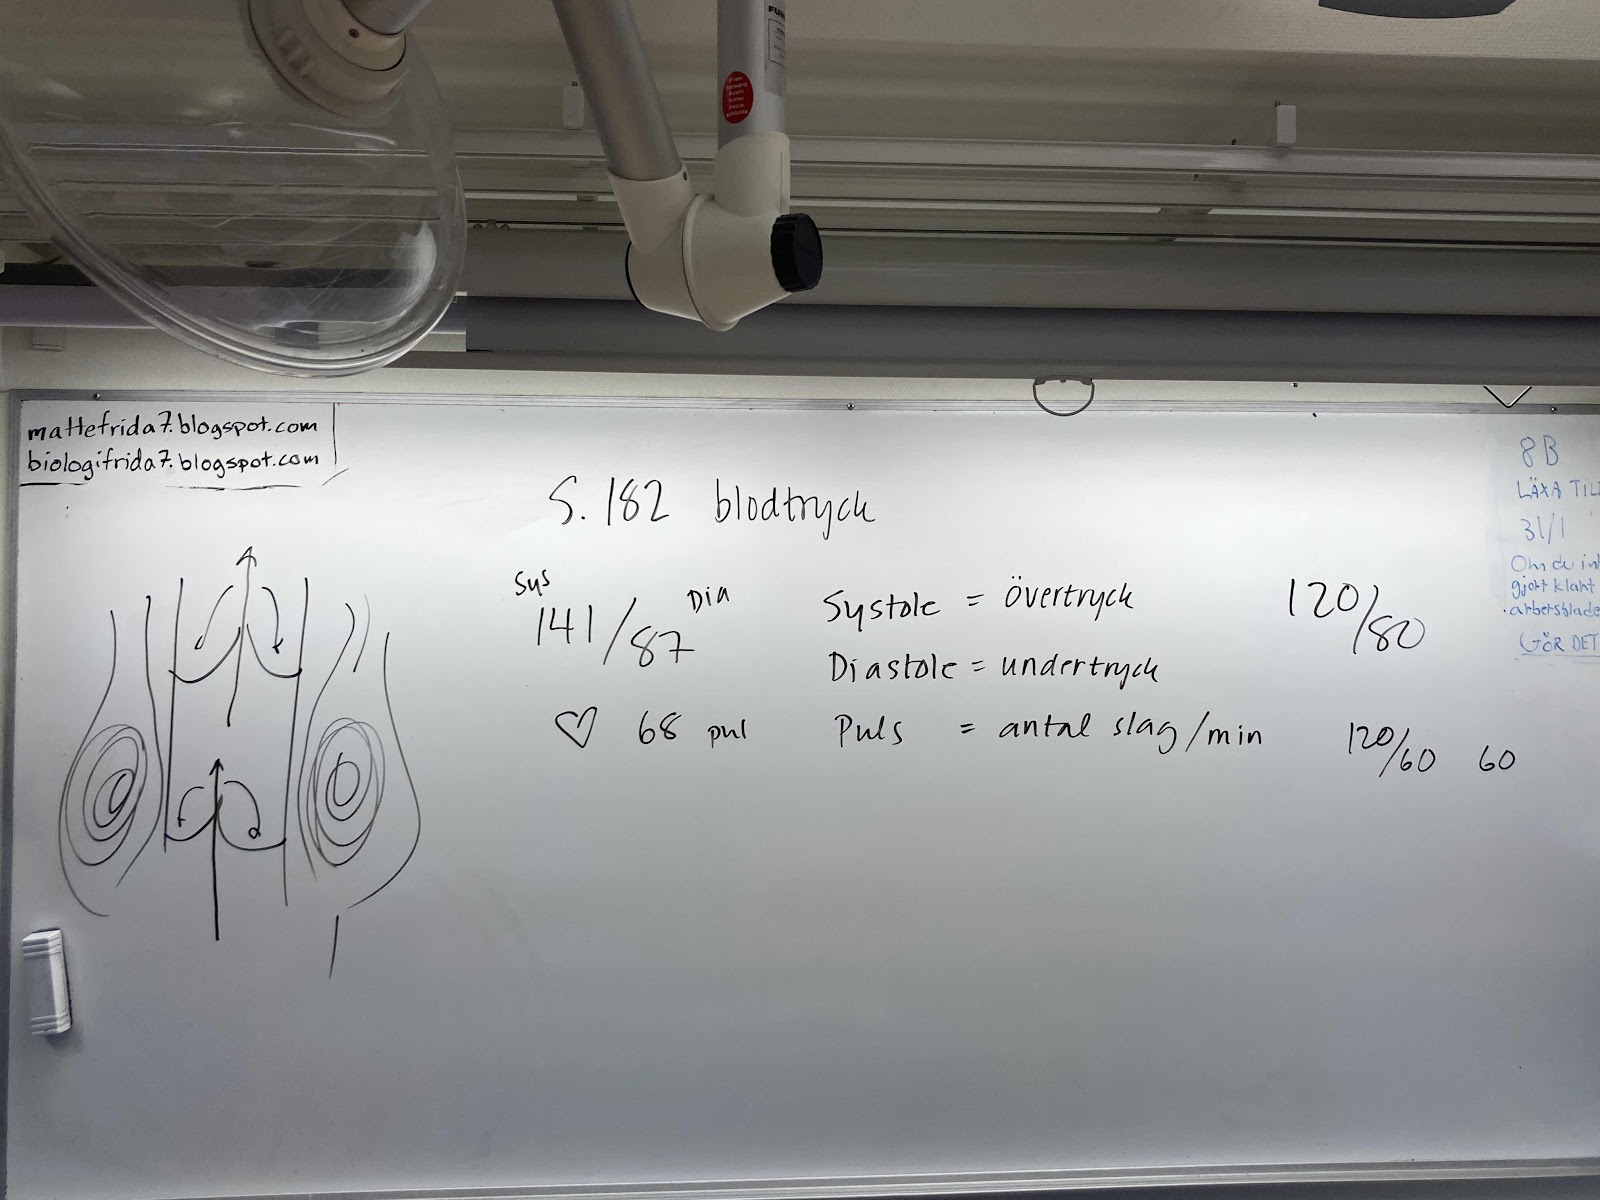 mattefrida7.blogspot.com
biologifrida7.blogspot.com
S. 182 blodtryck
Sys
141/87 Dia
♡ 68 pul
Systole = övertryck
Diastole = undertryck
Puls = antal slag/min
120/80
120/60 60
8B
LÄXA TILL
31/1
Om du int
gjort klart
arbetsblade
GÖR DET